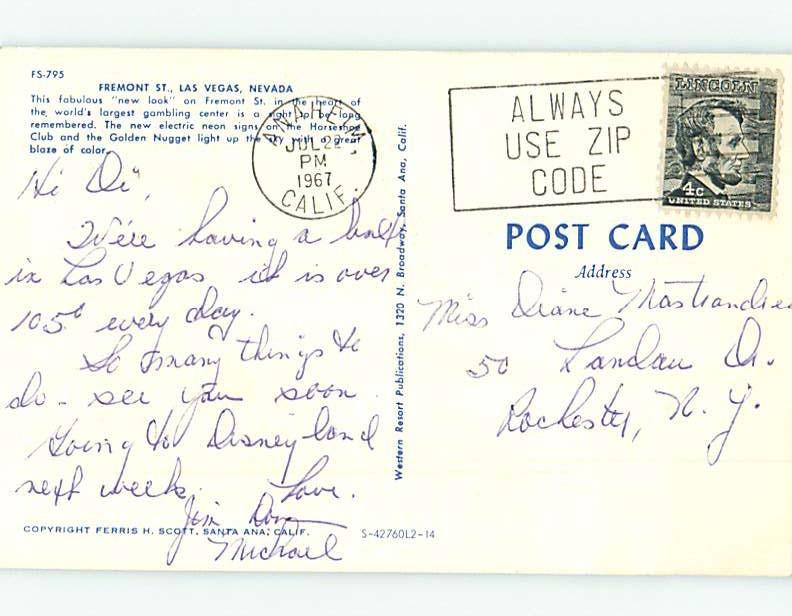 FS-795
FREMONT ST., LAS VEGAS, NEVADA
This fabulous "new look" on Fremont St. in the heart of
the world's largest gambling center is a sight to be long
remembered. The new electric neon signs on the Horseshoe
Club and the Golden Nugget light up the sky with a great
blaze of color.
Hi "Di",
We're having a ball
in Las Vegas it is over
105° every day.
So many things to
do - see you soon
Going to Disneyland
next week. Love.
Jim
Michael
COPYRIGHT FERRIS H. SCOTT, SANTA ANA, CALIF.
S-42760L2-14
Western Resort Publications, 1320 N. Broadway, Santa Ana, Calif.
ANAHEIM,
JUL 22
PM
1967
CALIF.
ALWAYS
USE ZIP
CODE
LINCOLN
4c
UNITED STATES
POST CARD
Address
Miss Diane
50 Landau Dr.
Rochester, N.Y.